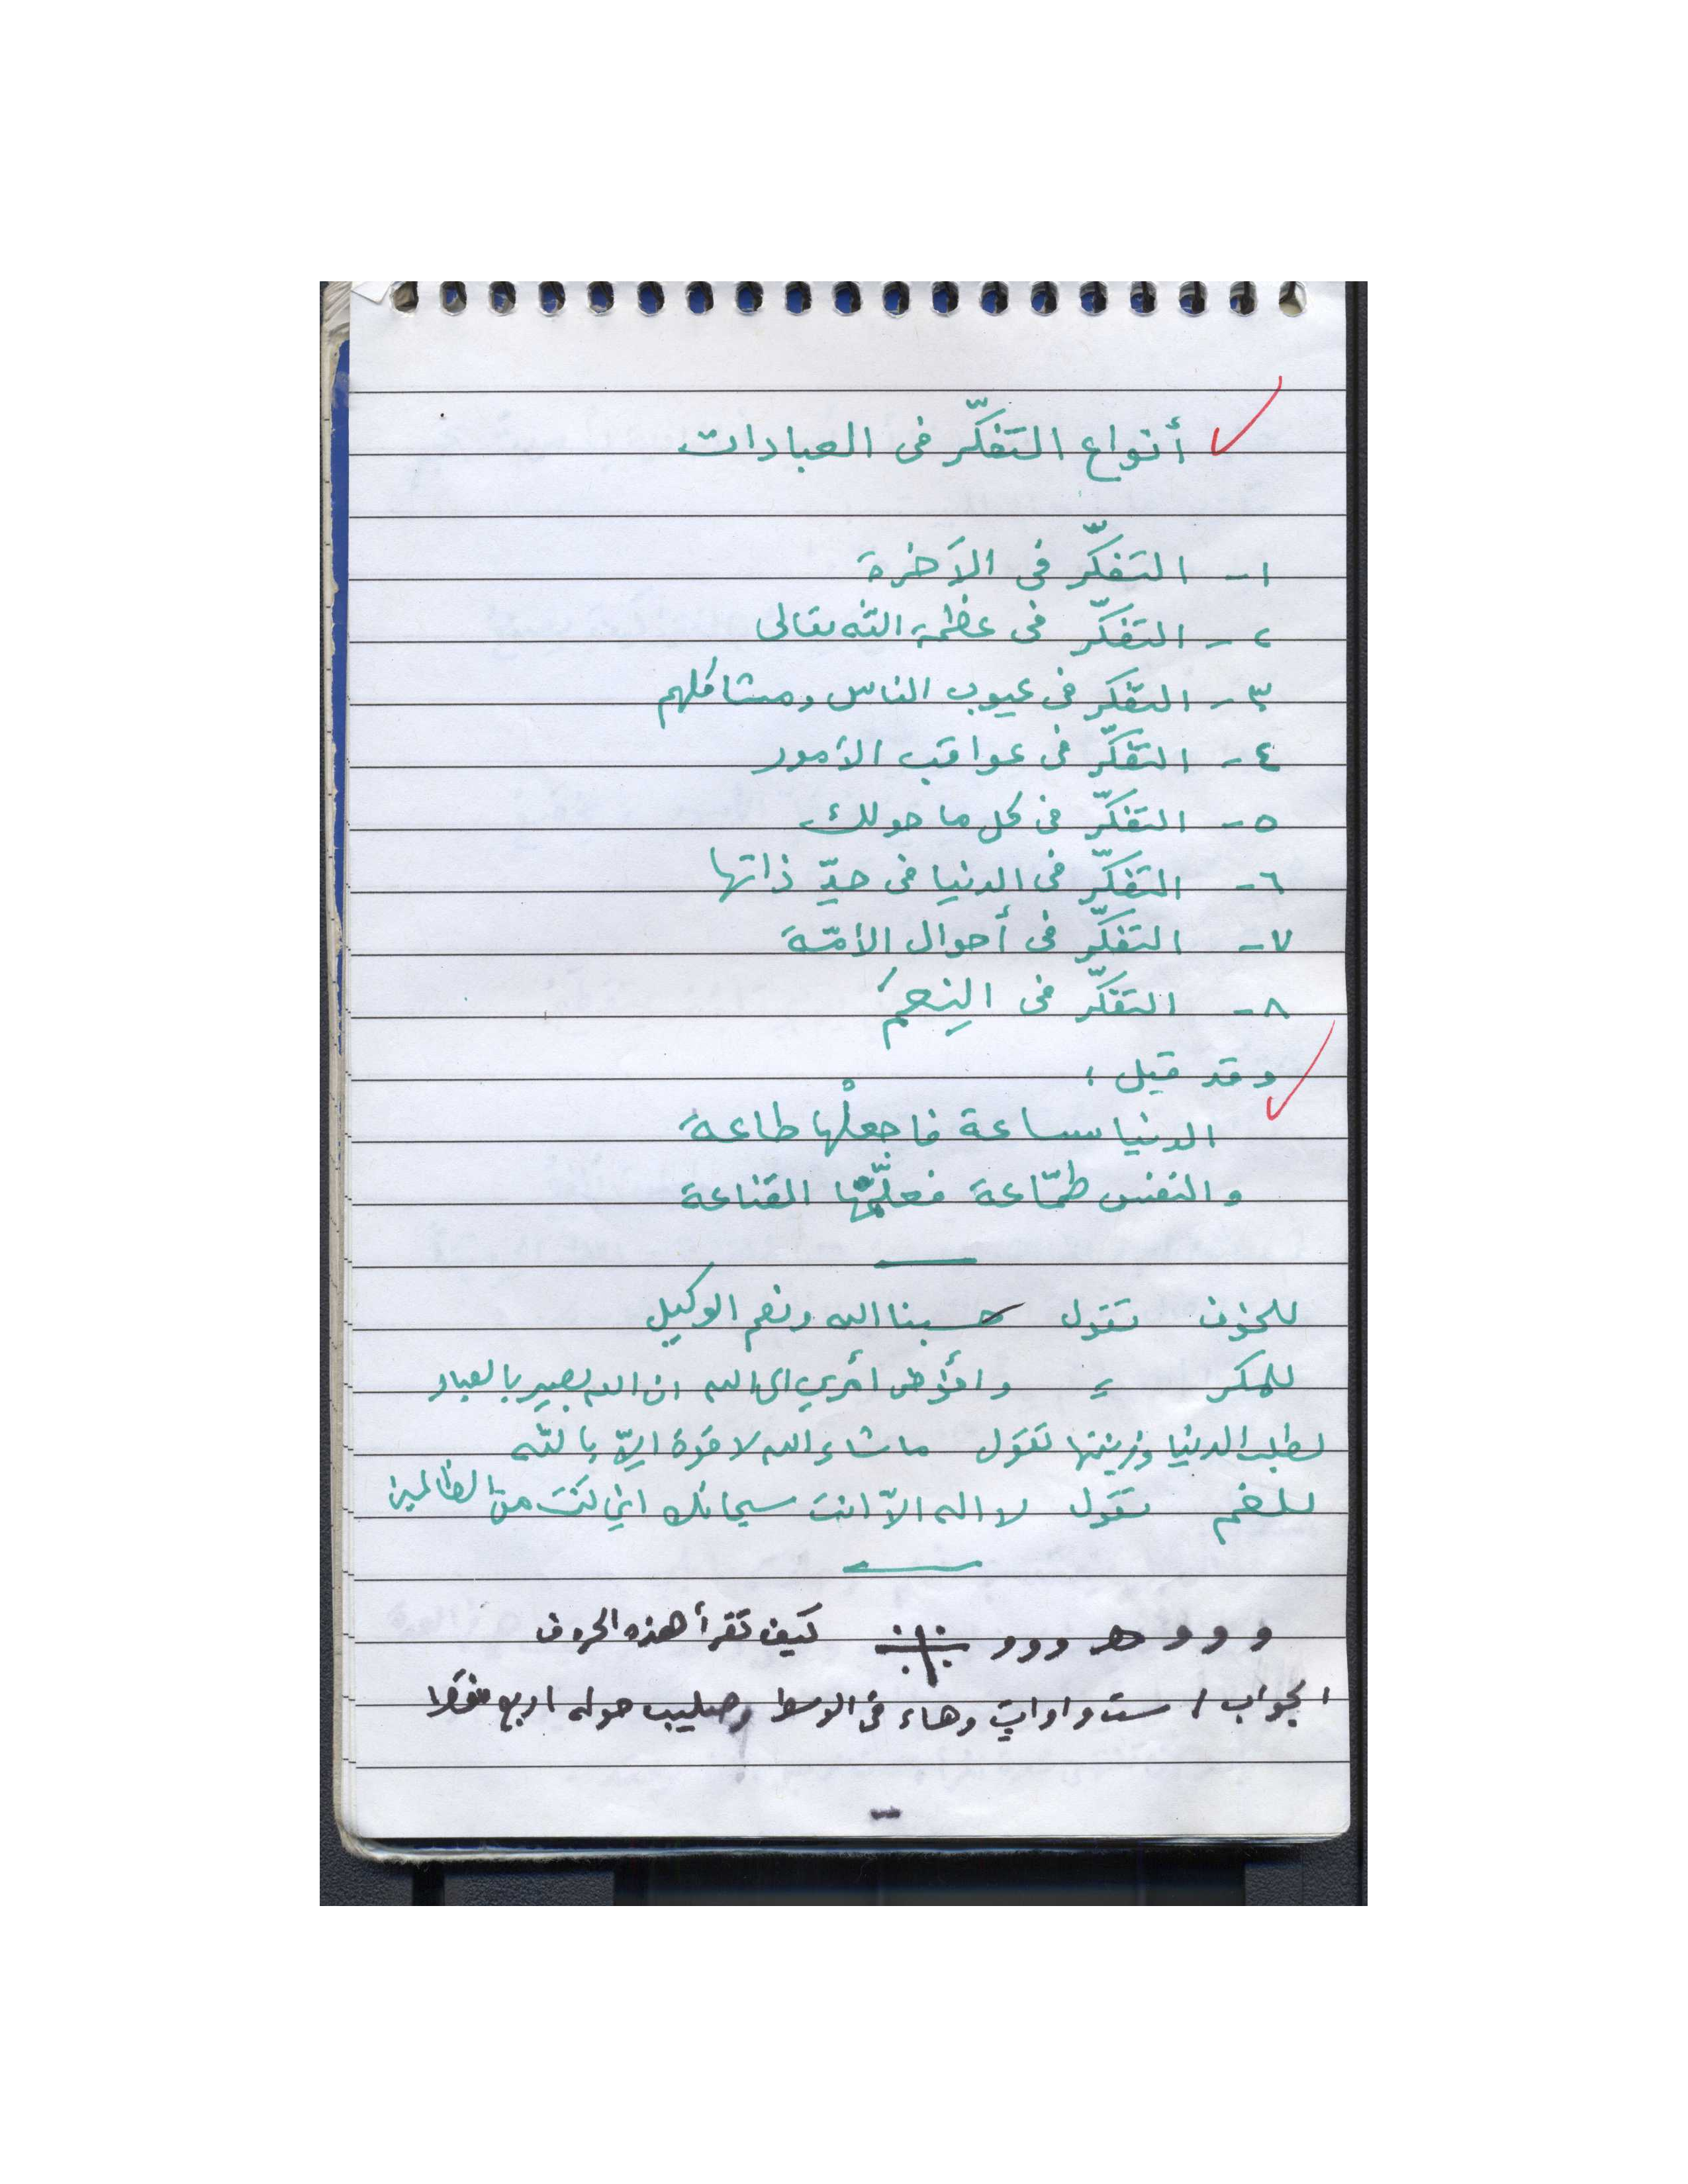 أنواع التفكّر في العبادات
١- التفكّر في الآخرة
٢- التفكّر في عظمة الله تعالى
٣- التفكر في عيوب الناس ومشاكلهم
٤- التفكّر في عواقب الأمور
٥- التفكّر في كل ما حولك
٦- التفكّر في الدنيا في حدّ ذاتها
٧- التفكّر في أحوال الأمّة
٨- التفكّر في النِعَم
وقد قيل :
الدنيا ساعة فاجعلْها طاعة
والنفس طمّاعة فعلّمّها القناعة
للخوف تقول حسبنا الله ونعم الوكيل
للمكر = وأفوّض أمري الى الله ان الله بصير بالعباد
لطلب الدنيا وزينتها تقول ما شاء الله لا قوة إلّا بالله
للغم تقول لا اله الّا انت سبحانك اني كنت من الظالمين
و و و هـ و و و كيف تقرأ هذه الحروف
الجواب / ست واوات وهاء في الوسط وصليب حوله اربع نقط